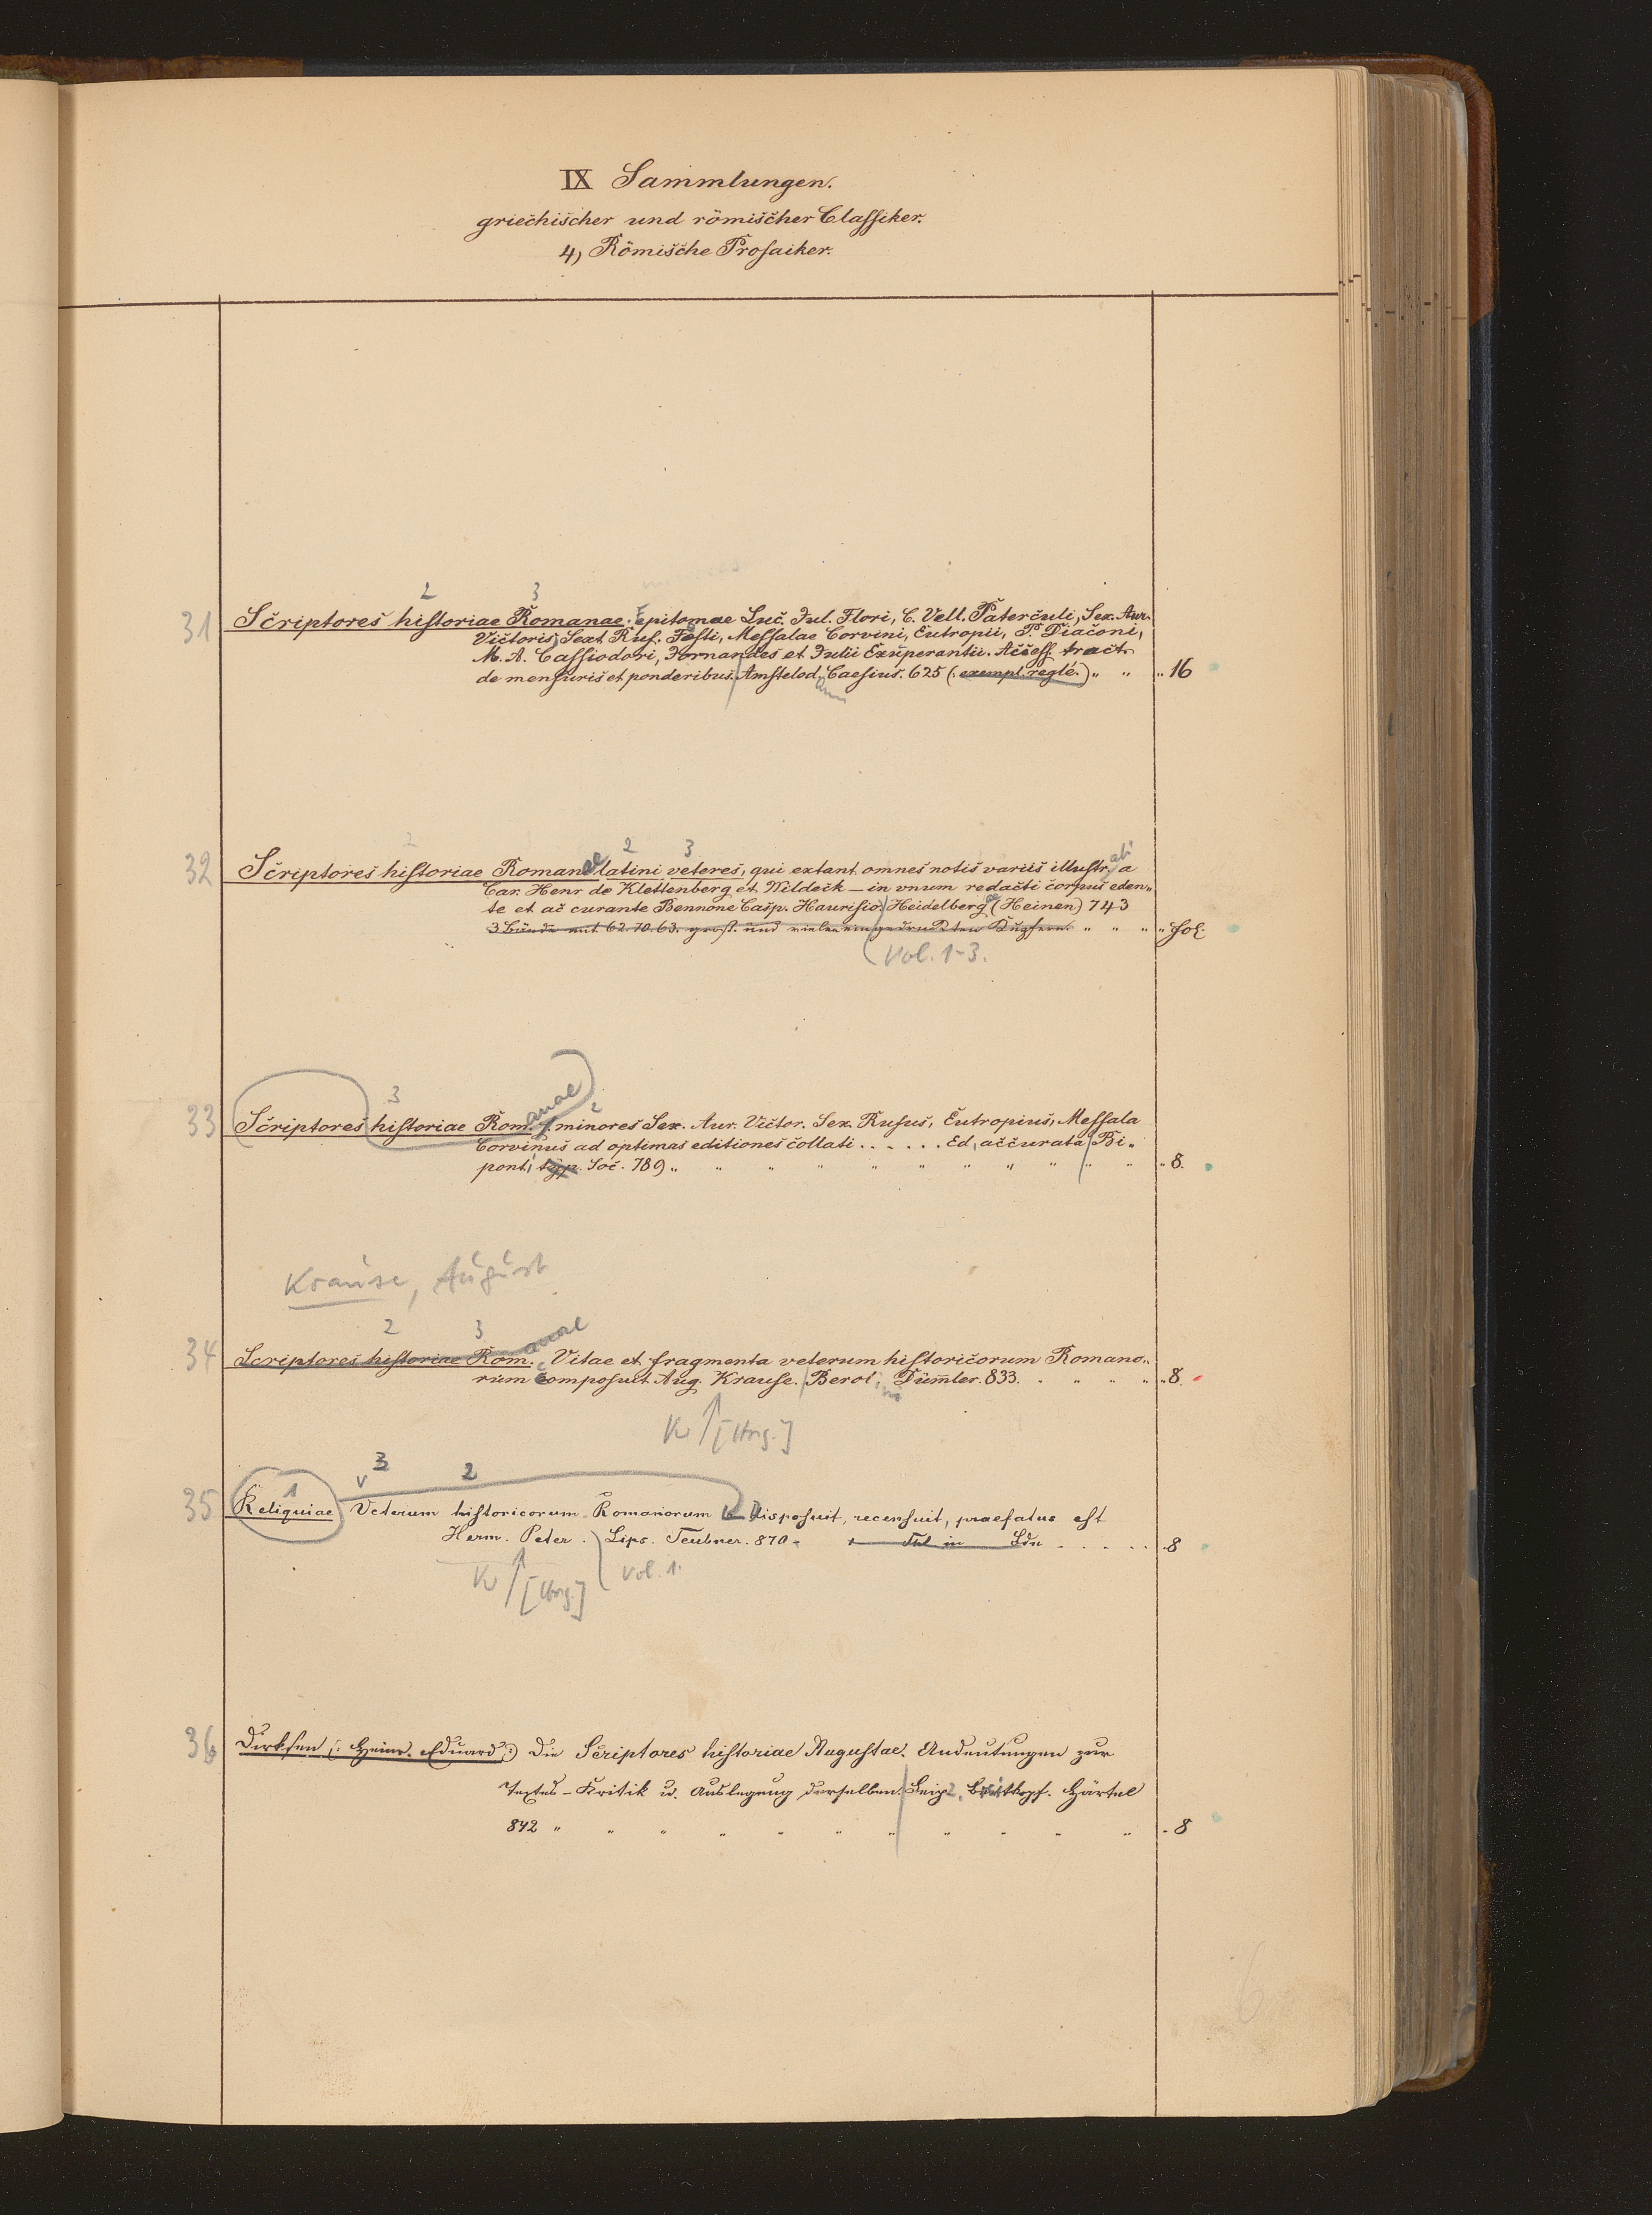 IX Sammlungen.
griechischer und römischer Classiker.
4) Römische Prosaiker.
2 3
31 Scriptores historiae Romanae. Epitomae Luc. Jul. Flori, C. Vell. Paterculi, Sex. Aur.
Victoris, Sext. Ruf. Festi, Messalae Corvini, Eutropii, P. Diaconi,
M. A. Cassiodori, Jornandes et Julii Exuperantii. Access. tract.
de mensuris et ponderibus. Amstelod. Caesius. 625 (: exempl. reglé.) " " " 16
2 3
32 Scriptores historiae Romanae latini veteres, qui extant omnes notis variis illustrati a
Car. Henr. de Klettenberg et Wildeck – in vnum redacti corpus eden„
te et ac curante Bennone Casp. Haurisio. Heidelbergae (Heinen) 743
3 Bände mit 62. 70. 63. groß. und vielen eingedruckten Kupfern. " " " " Fol.
Vol. 1-3.
3 2
33 Scriptores historiae Romanae minores Sex. Aur. Victor. Sex. Rufus, Eutropius, Messala
Corvinus ad optimas editiones collati . . . . . . Ed. accurata Bi„
ponti typ. Soc. 789 " " " " " " " " " " " 8.
Krause, August
2 3
34 Scriptores historiae Romanae Vitae et fragmenta veterum historicorum Romano„
rum composuit Aug. Krause. Berol. Dümler. 833. " " " " 8.
Kv [Hrg.]
3 2
35 1 Reliquiae Veterum historicorum Romanorum Disposuit, recensuit, praefatus est
Herm. Peter. Lips. Teubner. 870 – . . . . . 8
Kv [Hrg.] Vol. 1.
36 Dirksen (: Heinr. Eduard :) Die Scriptores historiae Augustae. Andeutungen zur
Textes-Kritik u. Auslegung derselben. Leipz. Breitkopf. Härtel
842 " " " " " " " " " " " . 8
6